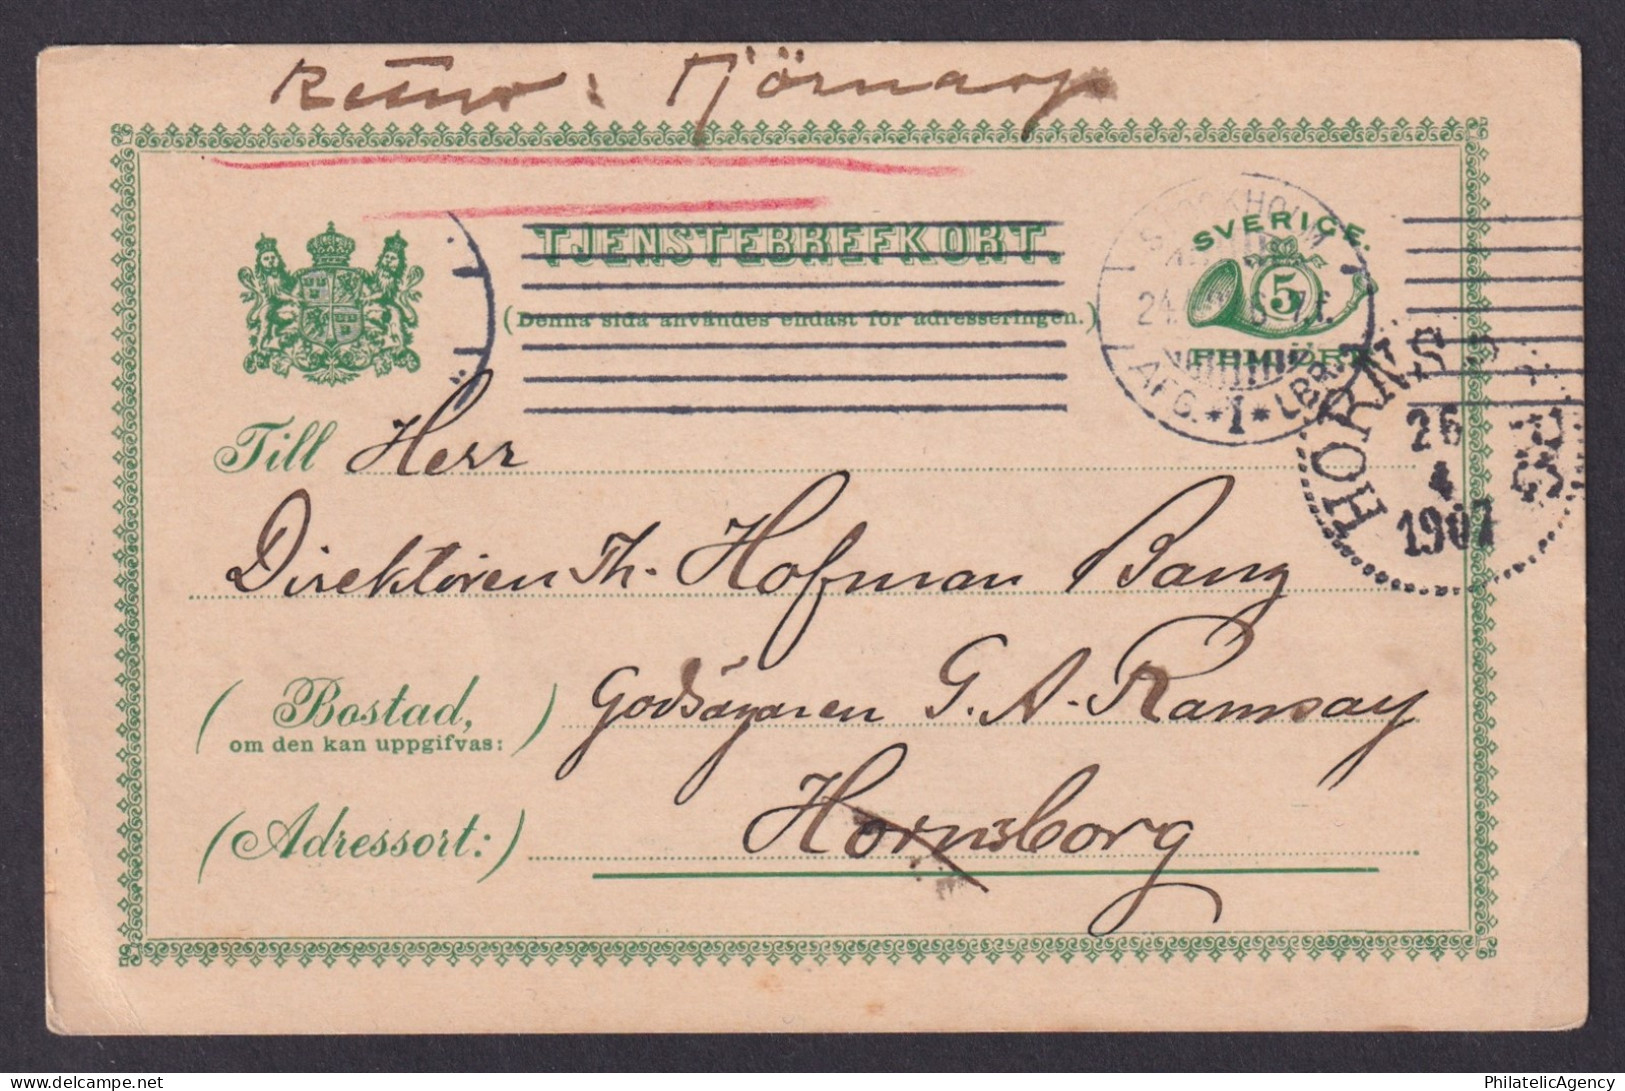 Retur: Tjörnarp
TJENSTEBREFKORT.
(Denna sida användes endast för adresseringen.)
SVERIGE.
5
FEM ÖRE
STOCKHOLM
AFG. *1* LBR.
HORNSBORG
26
4
1907
Till Herr
Direktören Th. Hofman Bang
(Bostad,
om den kan uppgifvas:)
Godsägaren G. A. Ramsay
(Adressort:)
Hornsborg
PhilatelicAgency